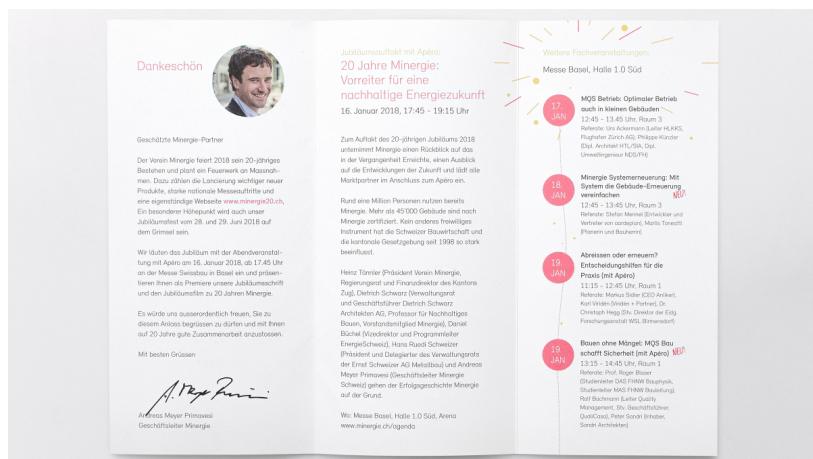 Dankeschön
Geschätzte Minergie-Partner
Der Verein Minergie feiert 2018 sein 20-jähriges
Bestehen und plant ein Feuerwerk an Massnah-
men. Dazu zählen die Lancierung wichtiger neuer
Produkte, starke nationale Messeauftritte und
eine eigenständige Webseite www.minergie20.ch.
Ein besonderer Höhepunkt wird auch unser
Jubiläumsfest vom 28. und 29. Juni 2018 auf
dem Grimsel sein.
Wir läuten das Jubiläum mit der Abendveranstal-
tung mit Apéro am 16. Januar 2018, ab 17.45 Uhr
an der Messe Swissbau in Basel ein und präsen-
tieren Ihnen als Premiere unsere Jubiläumsschrift
und den Jubiläumsfilm zu 20 Jahren Minergie.
Es würde uns ausserordentlich freuen, Sie zu
diesem Anlass begrüssen zu dürfen und mit Ihnen
auf 20 Jahre gute Zusammenarbeit anzustossen.
Mit besten Grüssen
Andreas Meyer Primavesi
Geschäftsleiter Minergie
Jubiläumsauftakt mit Apéro:
20 Jahre Minergie:
Vorreiter für eine
nachhaltige Energiezukunft
16. Januar 2018, 17:45 - 19:15 Uhr
Zum Auftakt des 20-jährigen Jubiläums 2018
unternimmt Minergie einen Rückblick auf das
in der Vergangenheit Erreichte, einen Ausblick
auf die Entwicklungen der Zukunft und lädt alle
Marktpartner im Anschluss zum Apéro ein.
Rund eine Million Personen nutzen bereits
Minergie. Mehr als 45'000 Gebäude sind nach
Minergie zertifiziert. Kein anderes freiwilliges
Instrument hat die Schweizer Bauwirtschaft und
die kantonale Gesetzgebung seit 1998 so stark
beeinflusst.
Heinz Tännler (Präsident Verein Minergie,
Regierungsrat und Finanzdirektor des Kantons
Zug), Dietrich Schwarz (Verwaltungsrat
und Geschäftsführer Dietrich Schwarz
Architekten AG, Professor für Nachhaltiges
Bauen, Vorstandsmitglied Minergie), Daniel
Büchel (Vizedirektor und Programmleiter
EnergieSchweiz), Hans Ruedi Schweizer
(Präsident und Delegierter des Verwaltungsrats
der Ernst Schweizer AG Metallbau) und Andreas
Meyer Primavesi (Geschäftsleiter Minergie
Schweiz) gehen der Erfolgsgeschichte Minergie
auf der Grund.
Wo: Messe Basel, Halle 1.0 Süd, Arena
www.minergie.ch/agenda
Weitere Fachveranstaltungen:
Messe Basel, Halle 1.0 Süd
17.
JAN
MQS Betrieb: Optimaler Betrieb
auch in kleinen Gebäuden
12:45 - 13.45 Uhr, Raum 3
Referate: Urs Ackermann (Leiter HLKKS,
Flughafen Zürich AG), Philippe Künzler
(Dipl. Architekt HTL/SIA, Dipl.
Umweltingenieur NDS/FH)
18.
JAN
Minergie Systemerneuerung: Mit
System die Gebäude-Erneuerung
vereinfachen
NEU!
12:45 - 13:45 Uhr, Raum 3
Referate: Stefan Mennel (Entwickler und
Vertreter von aardeplan), Marlis
(Planerin und Bauherrin)
19.
JAN
Abreissen oder erneuern?
Entscheidungshilfen für die
Praxis (mit Apéro)
11:15 - 12:45 Uhr, Raum 1
Referate: Markus Sidler (CEO Anliker),
Karl Viridén (Viridén + Partner), Dr.
Christoph Hegg (Stv. Direktor der Eidg.
Forschungsanstalt WSL Birmensdorf)
19.
JAN
Bauen ohne Mängel: MQS Bau
schafft Sicherheit (mit Apéro)
NEU!
13:15 - 14:45 Uhr, Raum 1
Referate: Prof. Roger Blaser
(Studienleiter DAS FHNW Bauphysik,
Studienleiter MAS FHNW Bauleitung),
Ralf Bachmann (Leiter Quality
Management, Stv. Geschäftsführer,
QualiCasa), Peter Sandri (Inhaber,
Sandri Architekten)